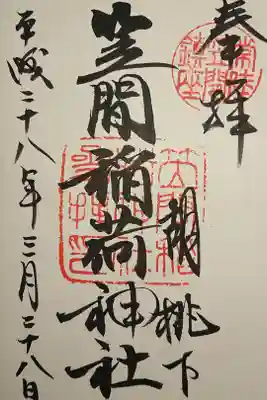 奉拝
笠間稲荷神社
胡桃下
平成二十八年三月二十八日